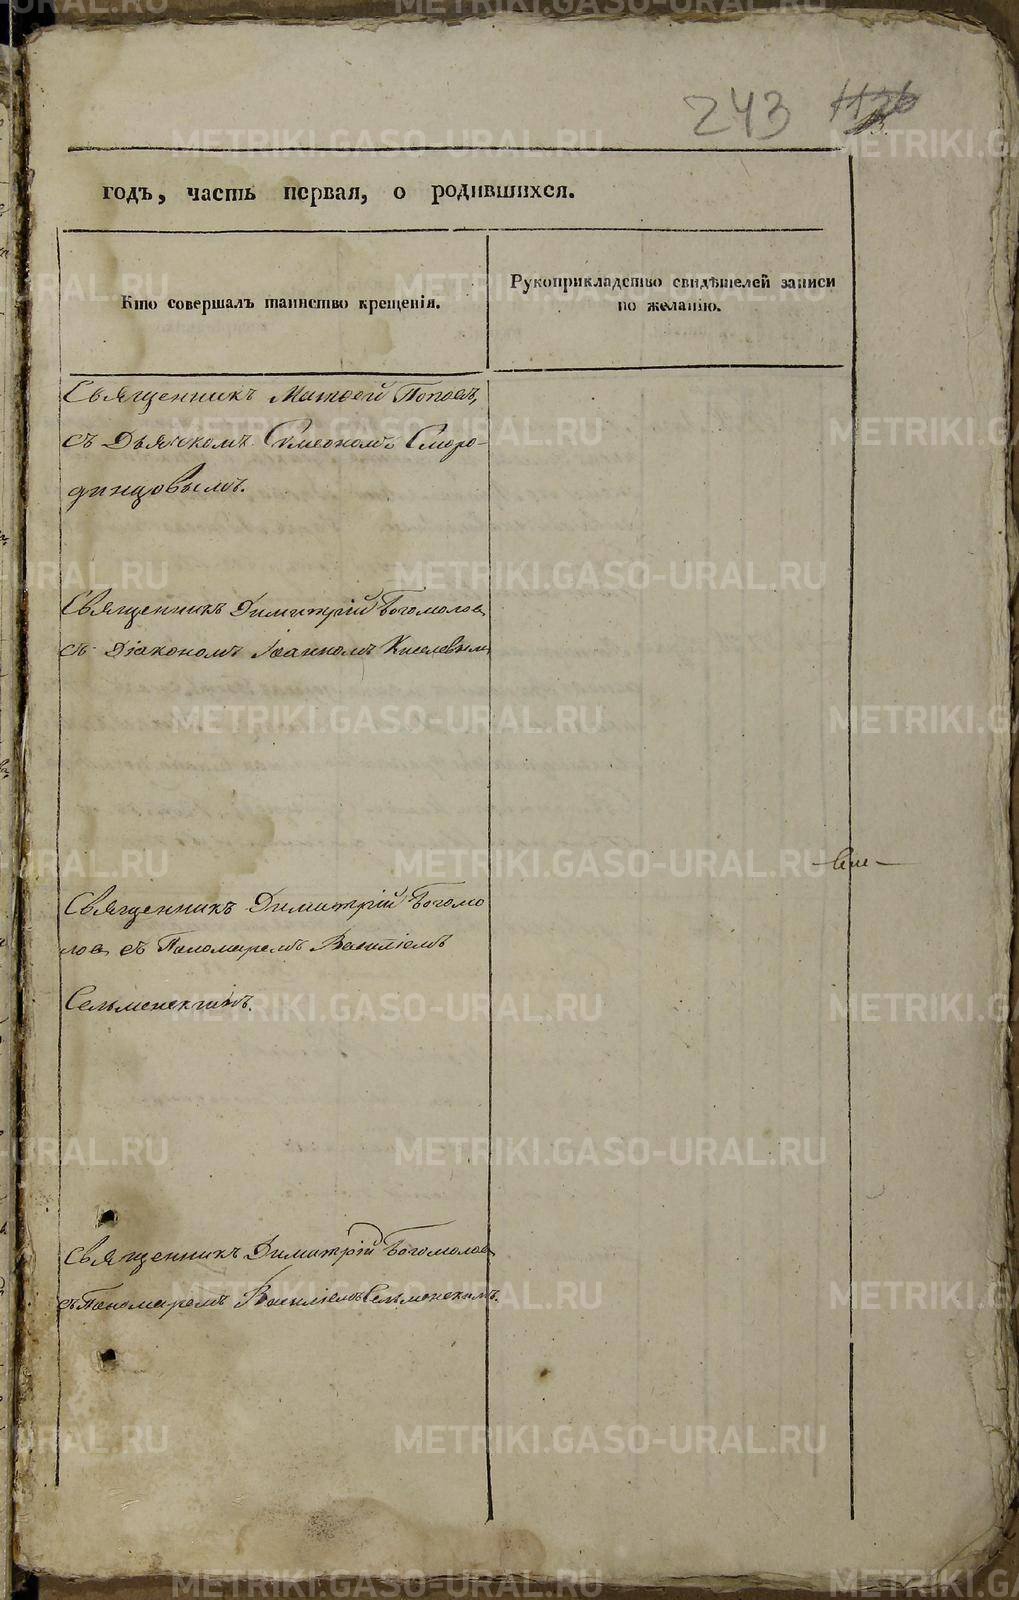 243 1126
годъ, часть первая, о родившихся.
Кто совершалъ таинство крещенія.
Рукоприкладство свидѣтелей записи
по желанію.
Священникъ Матѳей Поповъ,
съ Дьячкомъ Симеономъ Сморо-
динцовымъ.
Священникъ Димитрій Богомолов
съ Діакономъ Іоанномъ Киселевым
Священникъ Димитрій Богомо
лов съ Пономаремъ Василіемъ
Сельменскимъ.
Священникъ Димитрій Богомолов
съ Пономаремъ Василіемъ Сельменскимъ.
METRIKI.GASO-URAL.RU